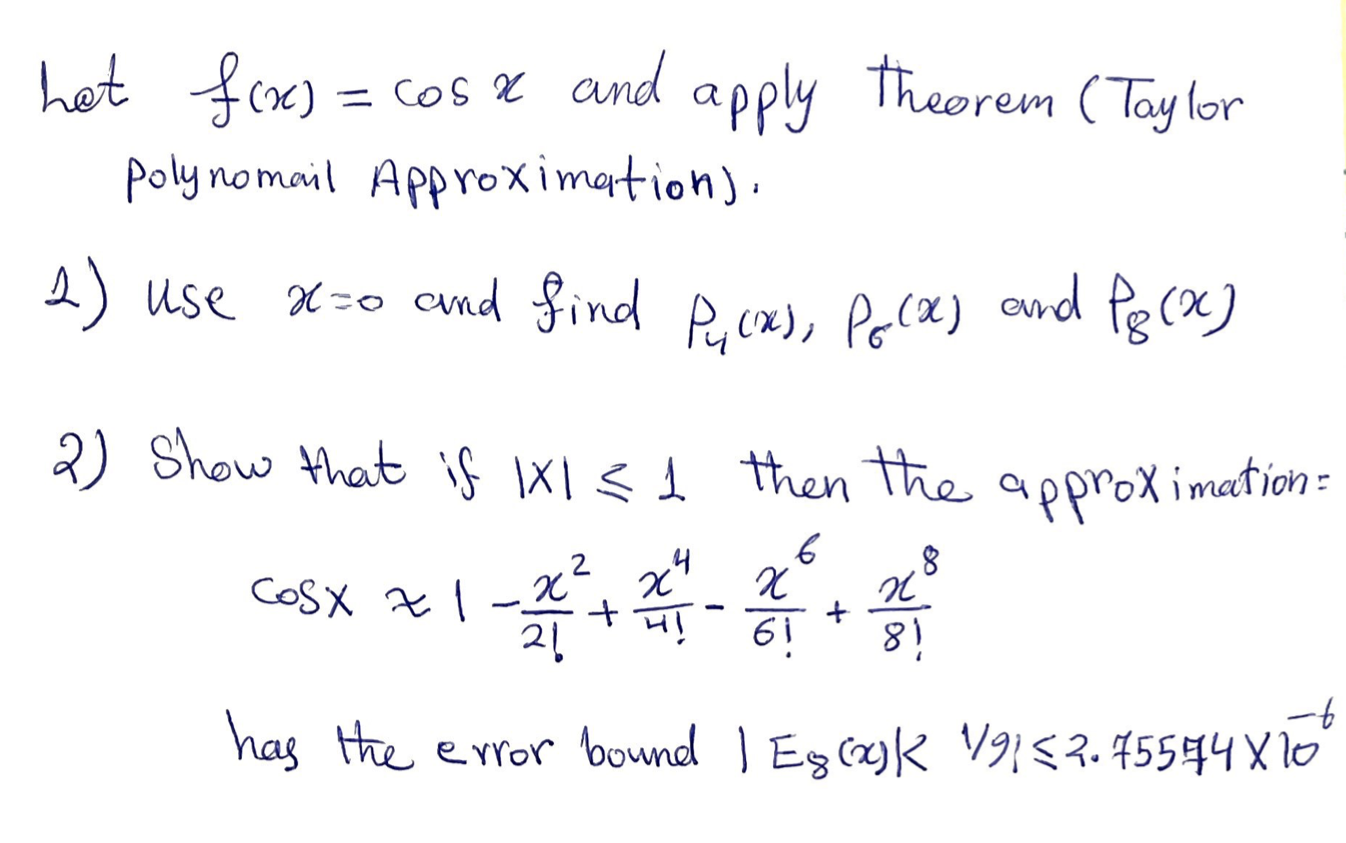 Let f(x) = cos x and apply Theorem (Taylor
Polynomail Approximation).
1) Use x=0 and find P₄(x), P₆(x) and P₈(x)
2) Show that if |x| ≤ 1 then the approximation:
cosx ≈ 1 - x²/2! + x⁴/4! - x⁶/6! + x⁸/8!
has the error bound | E₈(x)|< 1/9! ≤ 2.75574 X 10⁻⁶